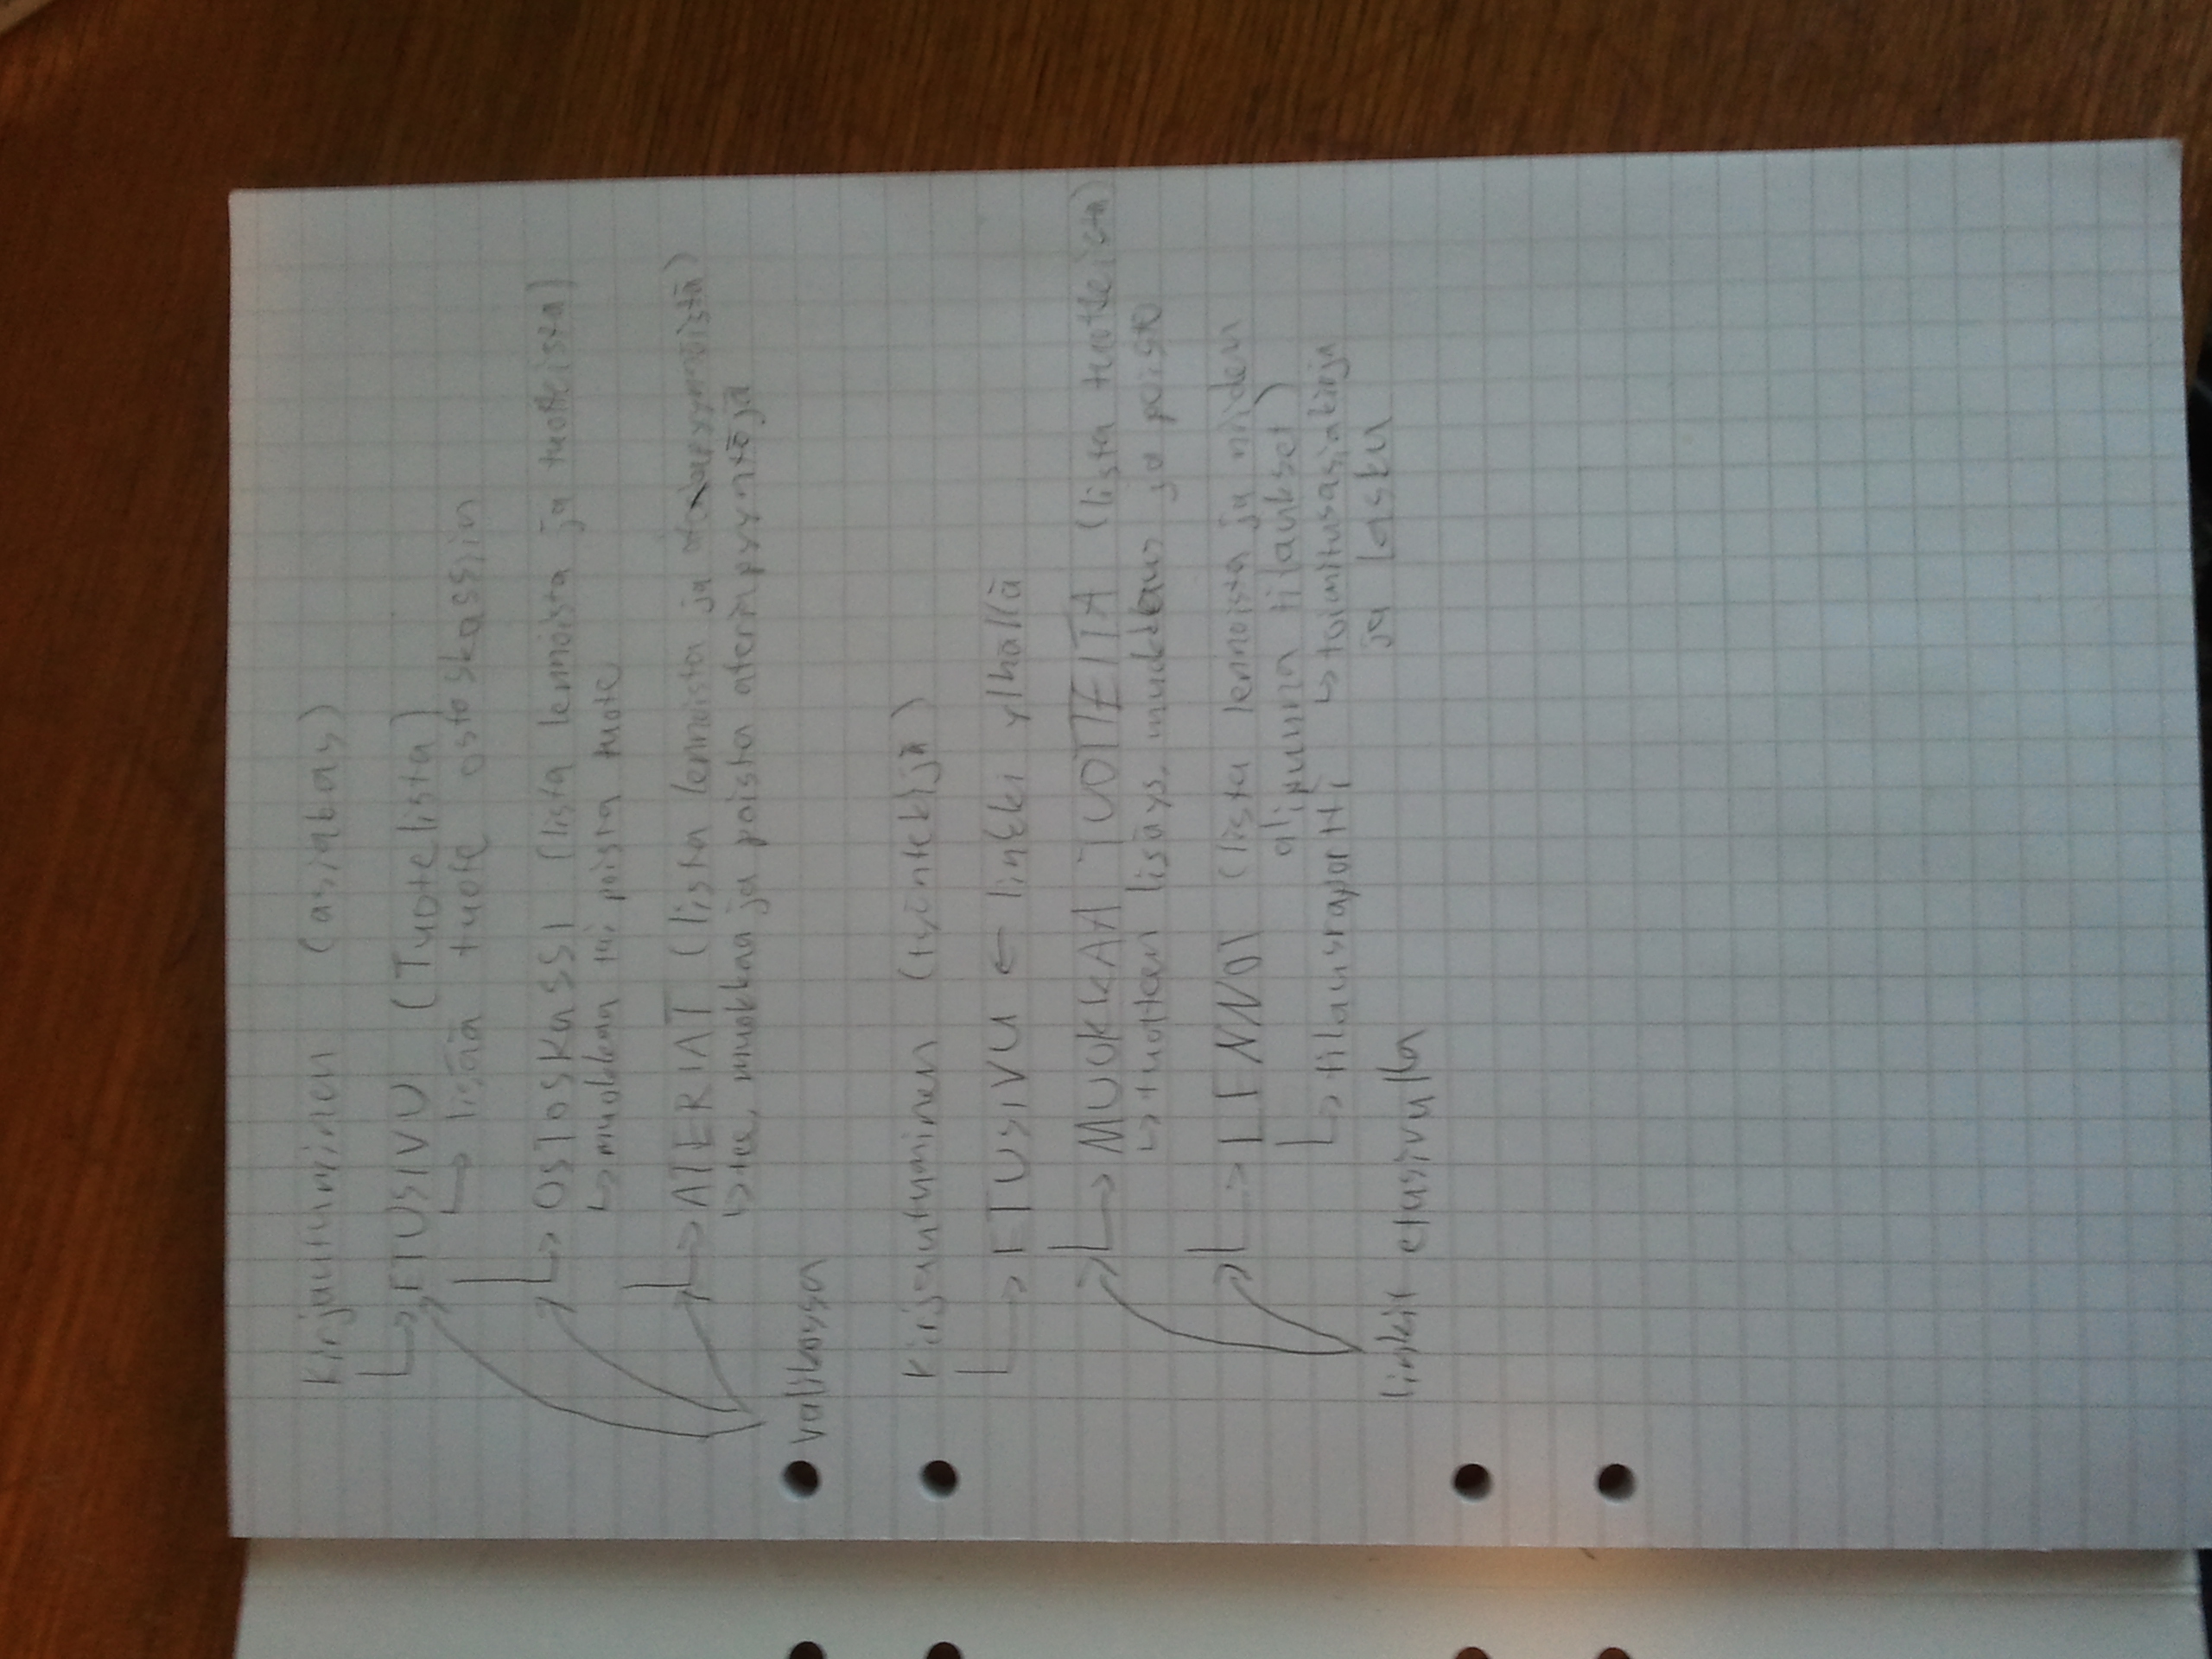 Kirjautuminen (asiakas)
ETUSIVU (Tuotelista)
lisää tuote ostoskassiin
OSTOSKASSI (lista lennoista ja tuotteista)
muokkaa tai poista tuote
ATERIAT (lista lennoista ja ateriapyynnöistä)
tee, muokkaa ja poista ateriapyyntöjä
valikossa
Kirjautuminen (työntekijä)
ETUSIVU ← linkki ylhällä
MUOKKAA TUOTTEITA (lista tuotteista)
tuotteen lisäys, muokkaus ja poisto
LENNOT (lista lennoista ja niiden
alipuuna tilaukset)
tilausraportti toimitusasiakirja
ja lasku
linkit etusivulla